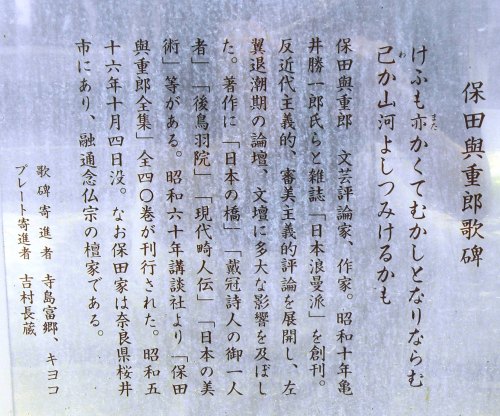 保田與重郎歌碑
けふも亦かくてむかしとなりならむ
また
己か山河よしつみけるかも
わ
保田與重郎 文芸評論家、作家。昭和十年亀
井勝一郎氏らと雑誌「日本浪曼派」を創刊。
反近代主義的、審美主義的評論を展開し、左
翼退潮期の論壇、文壇に多大な影響を及ぼし
た。著作に「日本の橋」「戴冠詩人の御一人
者」「後鳥羽院」「現代畸人伝」「日本の美
術」等がある。昭和六十年講談社より「保田
與重郎全集」全四〇巻が刊行された。昭和五
十六年十月四日没。なお保田家は奈良県桜井
市にあり、融通念仏宗の檀家である。
歌碑寄進者 寺島富郷、キヨコ
プレート寄進者 吉村長蔵